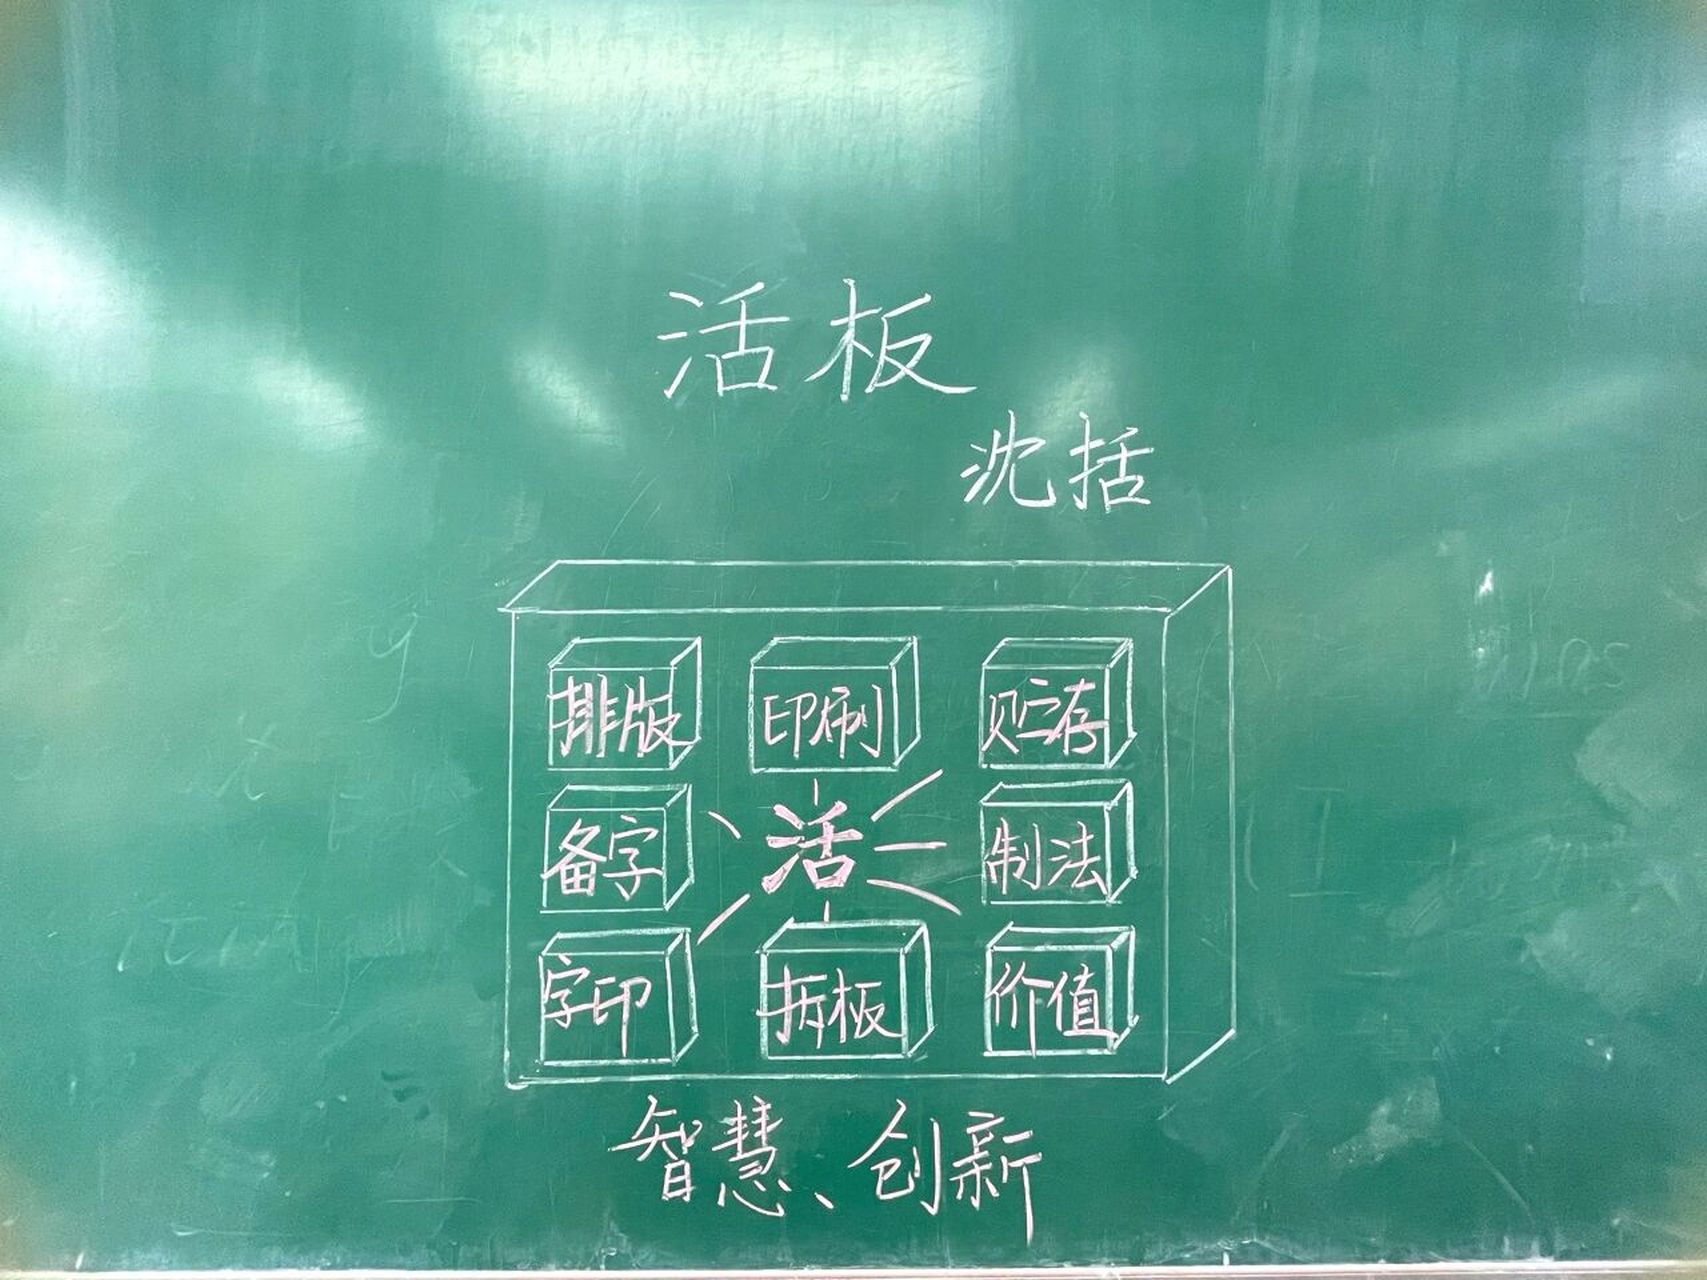 活板
沈括
排版 印刷 贮存
备字 活 制法
字印 拆板 价值
智慧、创新